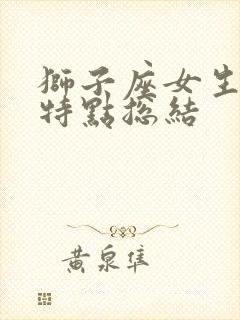 獅子座女生
特點總結
黃泉隼